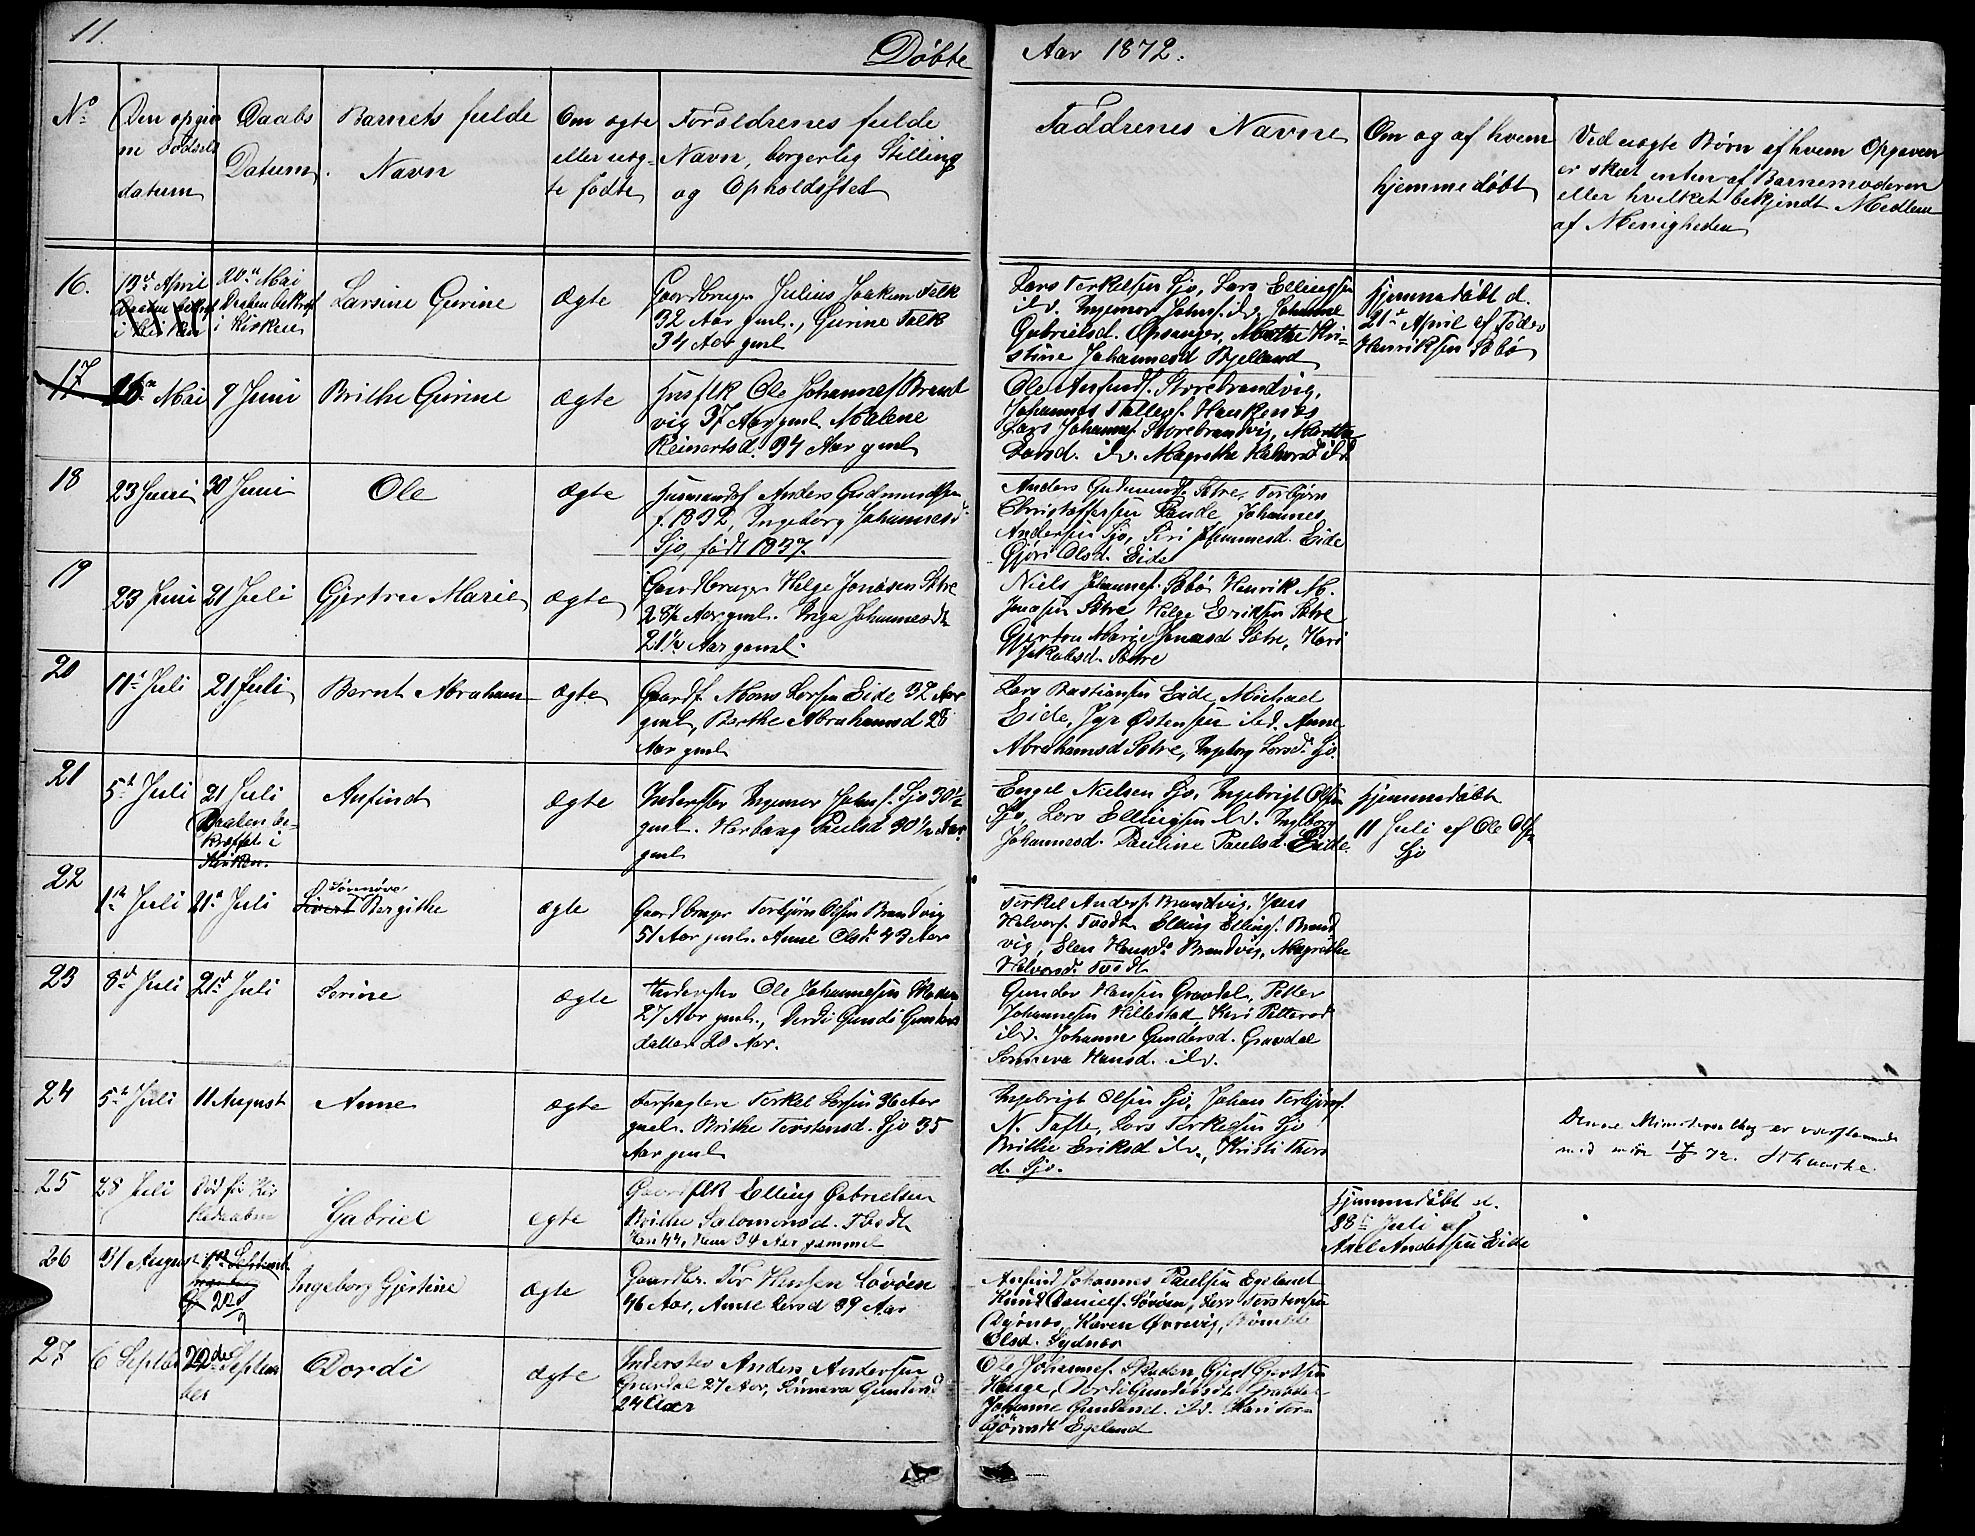 11.
Døbte
Aar 1872.
No
Den opgiv
ne Fødsels
datum
Daabs
Datum.
Barnets fulde
Navn
Om ægte
eller uæg-
te fødte
Forældrenes fulde
Navn, borgerlig Stilling
og Opholdssted
Faddrenes Navne
Om og af hvem
hjemmedøbt
Ved uægte Børn af hvem Opgaven
er skæt enten af Barnemoderen
eller hvilket bekjendt Medlem
af Menigheden
16.
13de April
20de Mai
Daaben bekræf
i Kirken
Larsine Gurine
Ægte
Gaardbruger Julius Joakim Falk
32 Aar gml., Gurine Falk
34 Aar gml
Lars Terkelsen Sjo, Lars Ellingsen
ibd. Ingemor Johns. ibd. Johanne
Gabrielsd. Opsanger, Marthe Kri-
stine Johannesd Bjelland
Hjemmedøbt d.
21de April af Peder
Henriksen Bøbø
17
16de Mai
9 Juni
Brithe Gurine
ægte
Husflk Ole Johannes Brand
vig 37 Aar gml. Malene
Reinertsd. 34 Aar gml
Ole Anfinds. Storebrandvig,
Johannes Halles. Haukenæs
Lars Johannes. Storebrandvig, Marthe
Larsd. ibd. Magrethe Halvorsd ibd.
18
23 Juni
30 Juni
Ole
Ægte
Husmandsf Anders Gudmundsen
f. 1832, Ingeborg Johannesd
Sjo, født 1837.
Anders Gudmunds. Sætre, Torbjørn
Christoffersen Lande, Johannes
Andersen Sjo, Siri Johannesd. Eide
Gjøri Olsd. Eide
19
23 Juni
21 Juli
Gjertru Marie
ægte
Gaardbruger Helge Jonasen Sætre
28½ Aar gml. Inga Johannesdtr
21½ Aar gaml.
Niels Johannes. Bøbø Henrik M.
Jonasen Sætre Helge Eriksen Sætre
Gjertru Marie Jonasd Sætre, Kari
Jakobsd. Sætre
20
11te Juli
21 Juli
Bernt Abraham
ægte
Gaardf. Mons Larsen Eide 32 Aar
gml, Berthe Abrahamsd 28
Aar gml
Lars Bastiansen Eide, Michael
Eide, Jgr Østensen ibd. Anne
Abrahamsd Sætre, Ingeborg Larsd. Sjo.
21
5te Juli
21 Juli
Daaben be-
kræftet i
Kirken.
Anfind
Ægte
Inderster Ingemor Johns. Sjo 30½
gml. Herborg Paulsd 30½ Aar
gml
Engel Nielsen Sjo, Ingebrigt Olsen
Sjo, Lars Ellingsen ibd. Ingeborg
Johannesd. Pauline Paulsd. Eide.
Hjemmedøbt
11 Juli af Ole Ols
Sjo
22
1ste Juli
21de Juli
Sønnøve
Sivert Bergithe
ægte
Gaardbruger Torbjørn Olsen Brandvig
51 Aar gml. Anne Olsd. 43 Aar
Terkel Anders. Brandvig, Jens
Halvors. Tvedt Elling Ellings. Brand
vig, Elen Hansd. Brandvig, Magrethe
Halvorsd. Tvedt
23
8de Juli
21de Juli
Serine
Ægte
Inderster Ole Johannesen Skaden
27 Aar gml., Dordi Gundi Gunders
datter 20 Aar.
Gunder Hansen Gravdal, Petter
Johannesen Hillestad Kari Pettersd
ibd. Johanne Gundersd. Gravdal
Sonneva Hansd. ibd.
24
5te Juli
11 August
Anne
ægte
Forpagtere Terkel Larsen 36 Aar
gml. Brithe Torstensd. Sjo 35
Aar gml
Ingebrigt Olsen Sjo, Johan Torbjørns.
N. Tofte, Lars Terkelsen Sjo
Brithe Eriksd ibd., Kristi Thors
d. Sjo.
25
28 Juli
Død før Kir
kedaaben
Gabriel
ægte
Gaardflk Elling Gabrielsen
Brithe Salomonsd. Tvedt
Han 44, Hun 34 Aar gammel
Hjemmedøbt d.
28de Juli af
Axel Andersen Eide
26
31 August
Ingeborg Gjertine
ægte
Gaardbr. Tor Hansen Løvøen
46 Aar, Anne Larsd 39 Aar
Anfind Johannes Paulsen Egeland
Knut Daniels. Løvøen, Lars Torstensen
Dyrnes, Karen Ørrevig,
Olsd. Sydnæs
27
6 Septbr
22de Septem
ber
Dordi
ægte
Inderster Anders Andersen
Gravdal 27 Aar, Sønneva Gundersd
24 Aar
Ole Johannes. Skaden, Gjert Gjertsen
Hauge, Dordi Gundersdt Gravdal
Johanne Gundersd. ibd. Kari Tor-
bjørnsdt Egeland